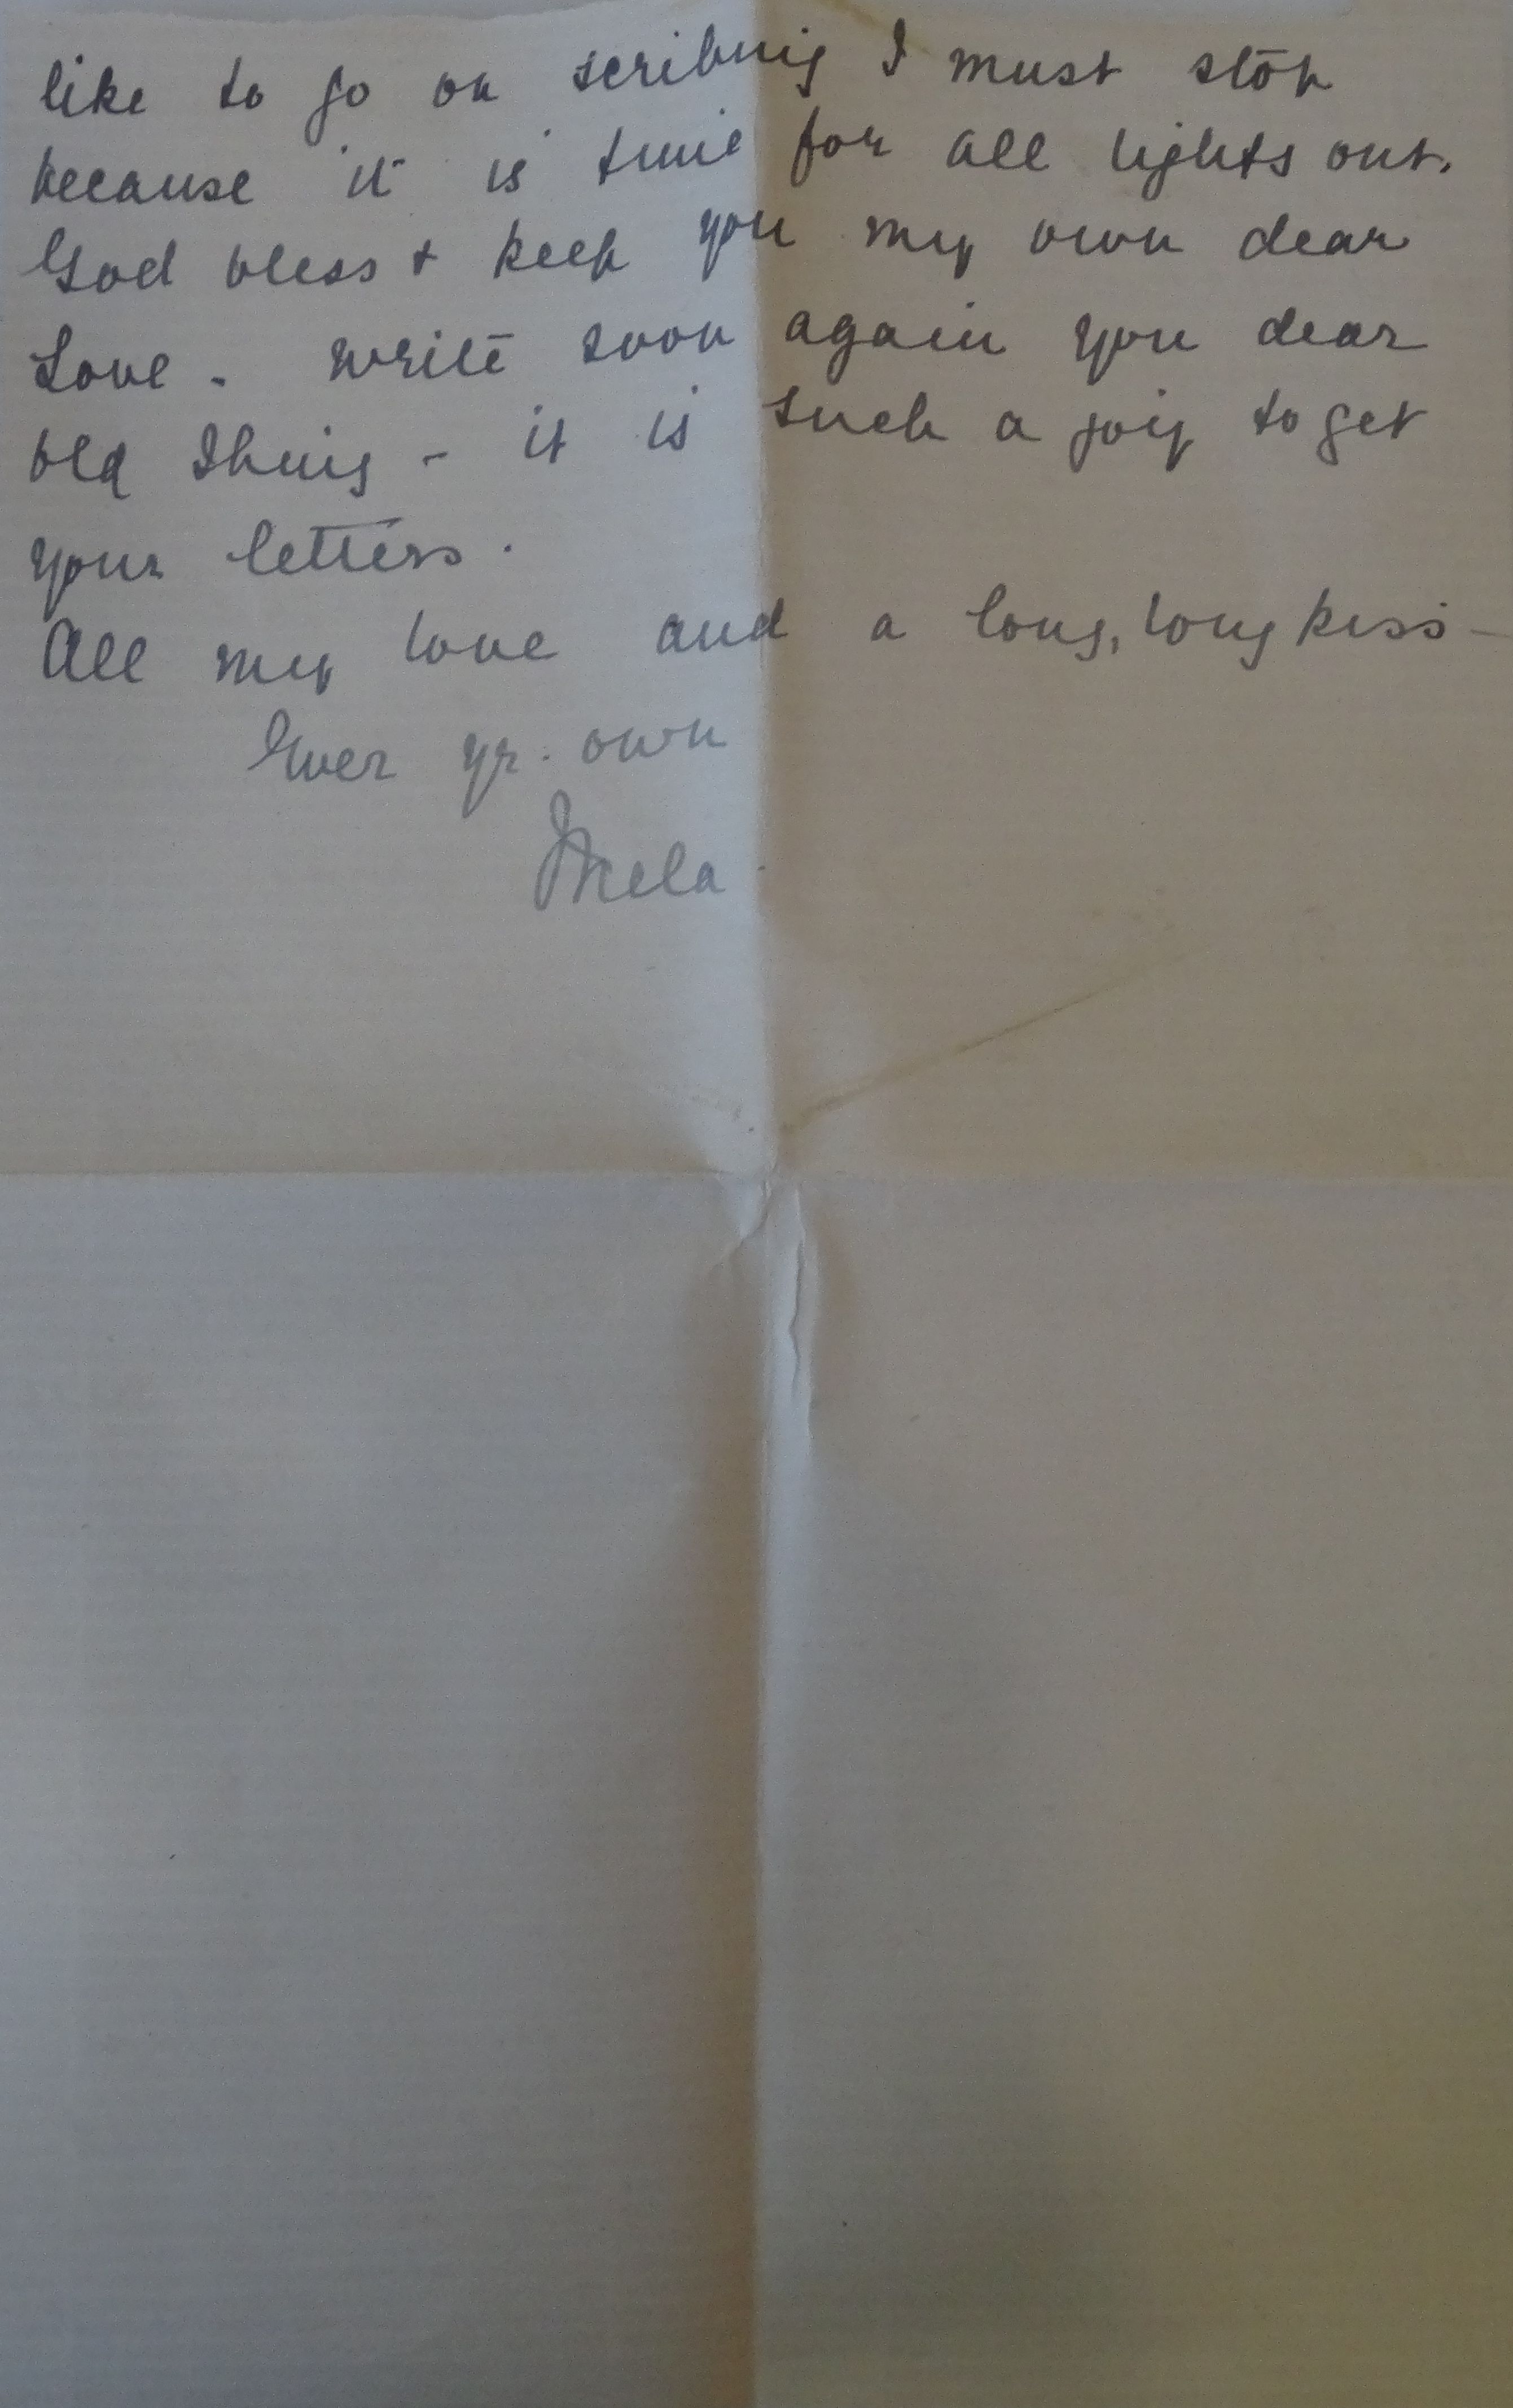 like to go on scribing I must stop
because it is time for all lights out.
God bless + keep you my own dear
Love - write soon again you dear
old Thing - it is such a joy to get
your letters.
All my love and a long, long kiss -
Ever yr. own